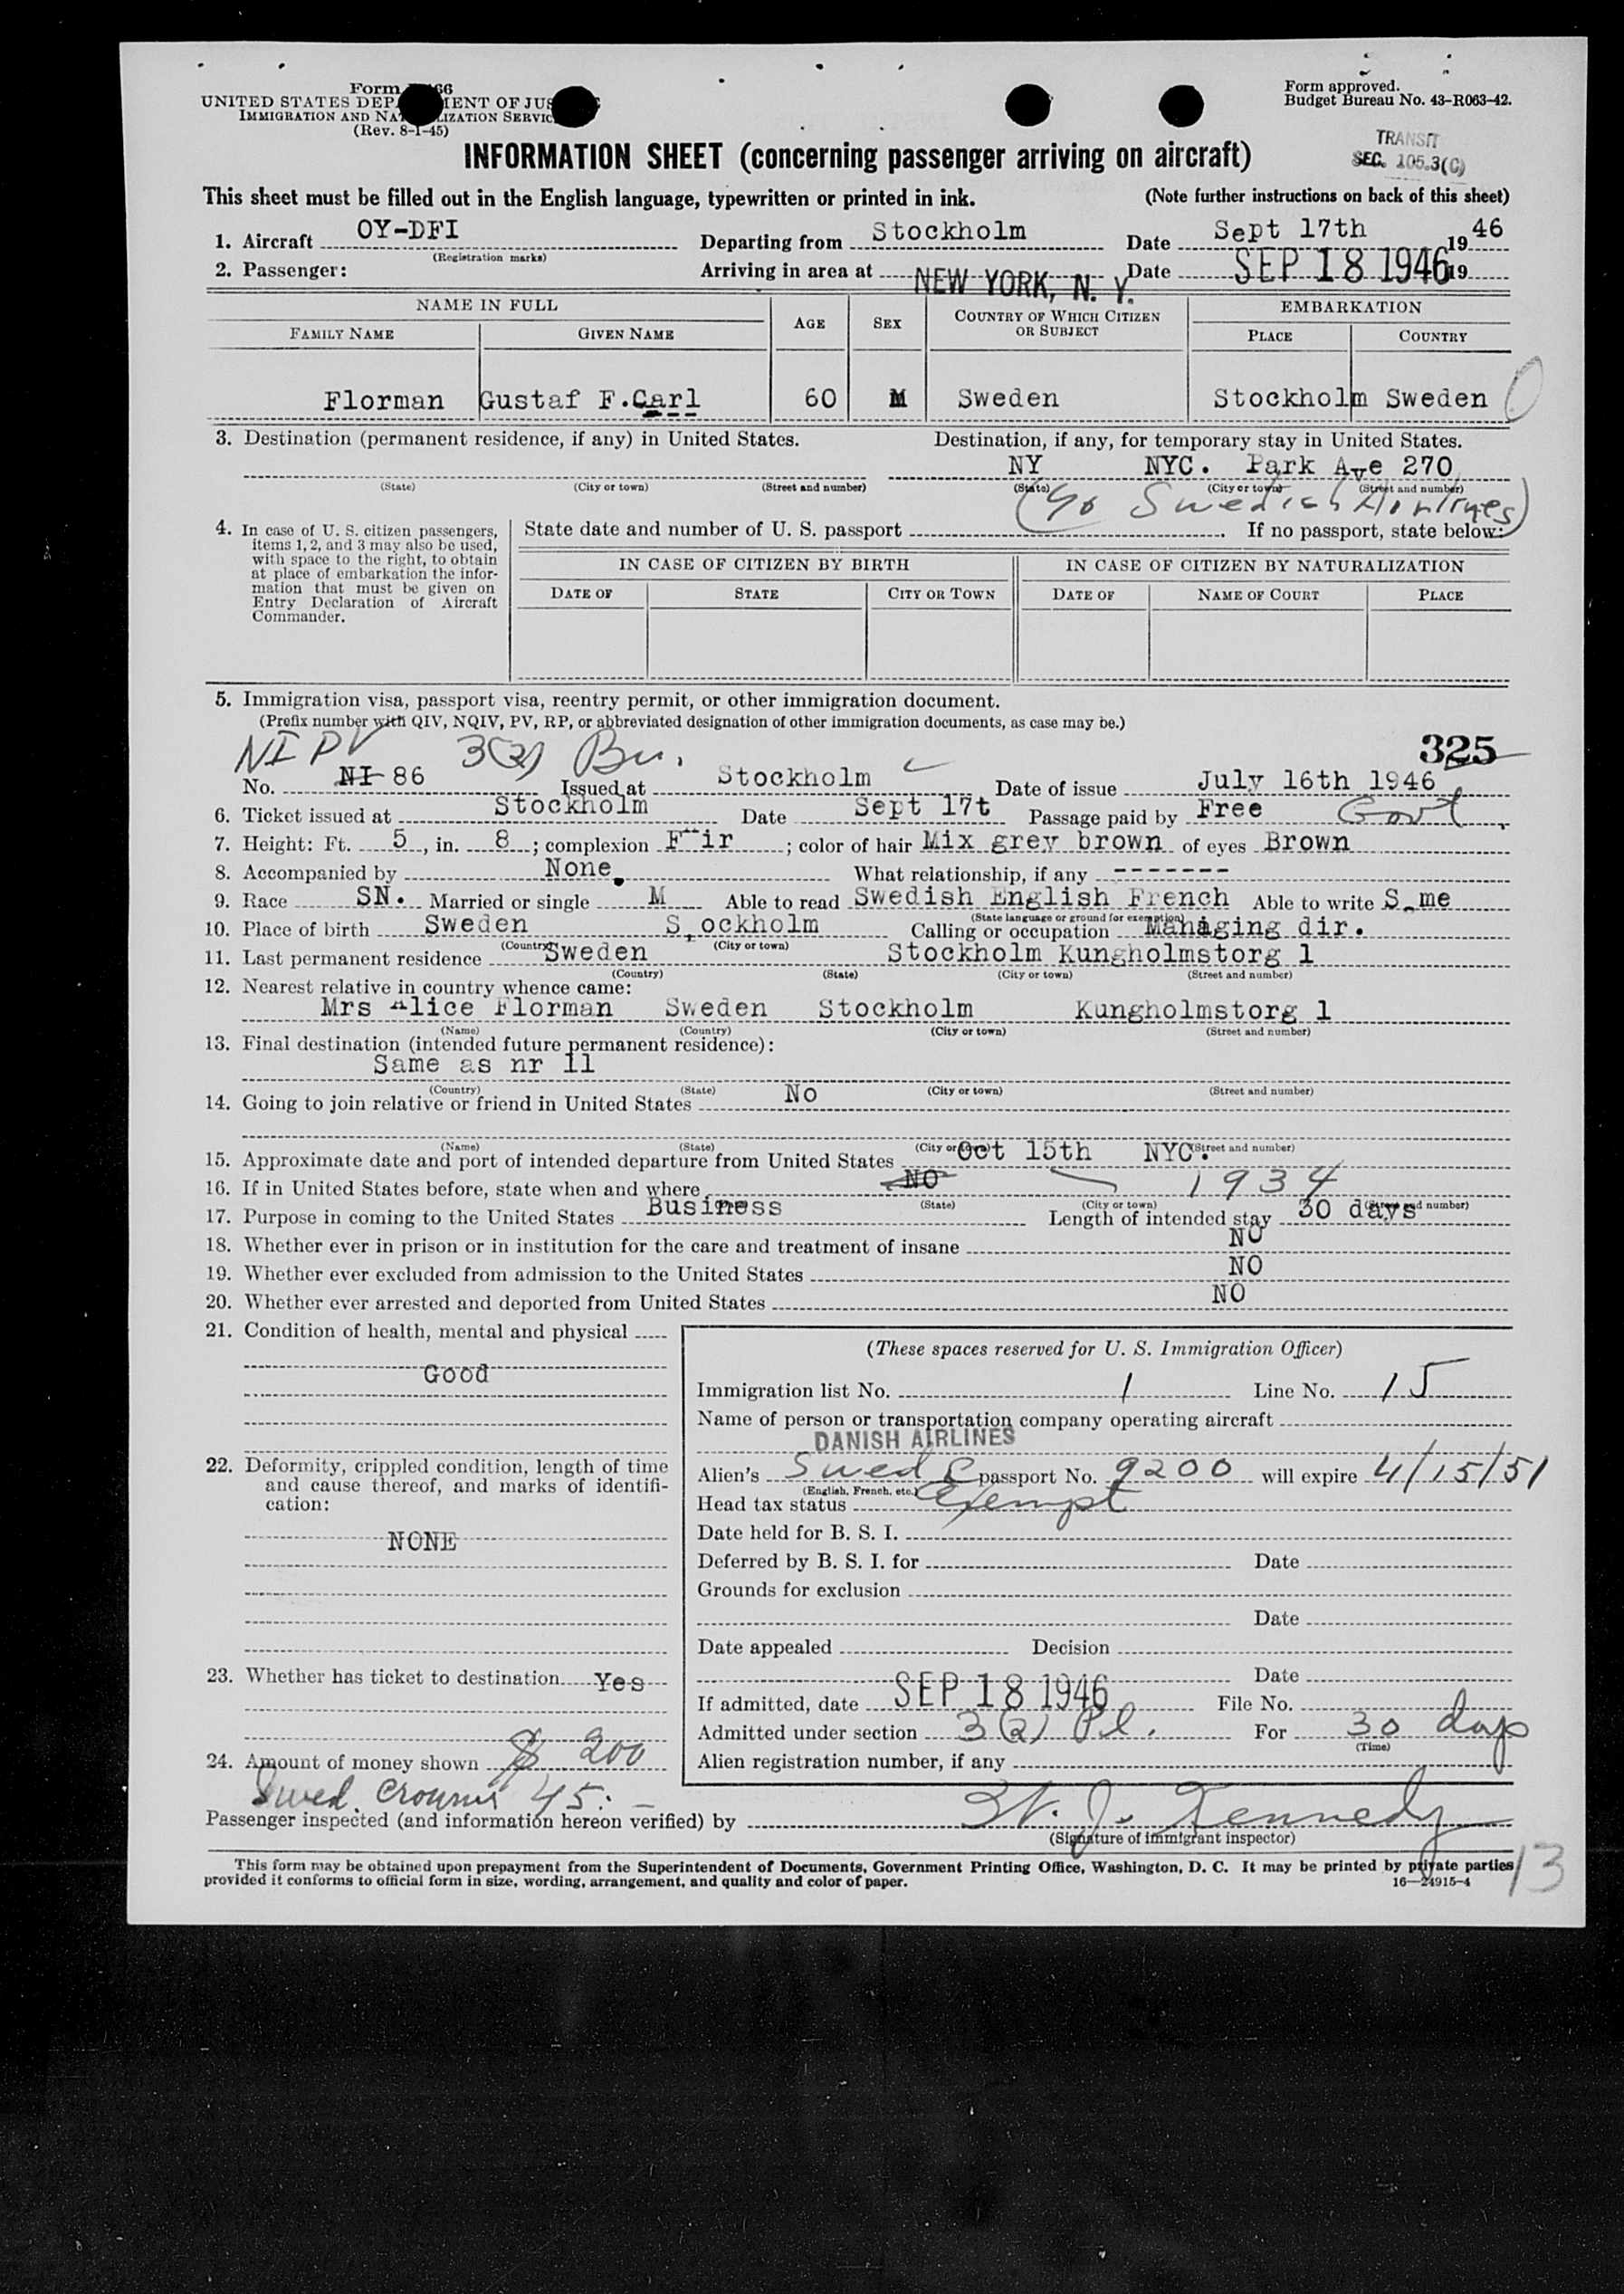 Form I-466
UNITED STATES DEPARTMENT OF JUSTICE
IMMIGRATION AND NATURALIZATION SERVICE
(Rev. 8-1-45)
Form approved.
Budget Bureau No. 43-R063-42.
TRANSIT
SEC. 105.3(C)
INFORMATION SHEET (concerning passenger arriving on aircraft)
This sheet must be filled out in the English language, typewritten or printed in ink. (Note further instructions on back of this sheet)
1. Aircraft OY-DFI Departing from Stockholm Date Sept 17th 1946
(Registration marks)
2. Passenger: Arriving in area at NEW YORK, N. Y. Date SEP 18 1946 19
NAME IN FULL AGE SEX COUNTRY OF WHICH CITIZEN OR SUBJECT EMBARKATION
FAMILY NAME GIVEN NAME PLACE COUNTRY
Florman Gustaf F.Carl 60 M Sweden Stockholm Sweden
3. Destination (permanent residence, if any) in United States. Destination, if any, for temporary stay in United States.
NY NYC. Park Ave 270
(State) (City or town) (Street and number) (State) (City or town) (Street and number)
(c/o Swedish Airlines)
4. In case of U. S. citizen passengers, items 1, 2, and 3 may also be used, with space to the right, to obtain at place of embarkation the information that must be given on Entry Declaration of Aircraft Commander.
State date and number of U. S. passport If no passport, state below:
IN CASE OF CITIZEN BY BIRTH IN CASE OF CITIZEN BY NATURALIZATION
DATE OF STATE CITY OR TOWN DATE OF NAME OF COURT PLACE
5. Immigration visa, passport visa, reentry permit, or other immigration document.
(Prefix number with QIV, NQIV, PV, RP, or abbreviated designation of other immigration documents, as case may be.)
NI PV 3(2) Bu. 325
No. NI 86 Issued at Stockholm Date of issue July 16th 1946
6. Ticket issued at Stockholm Date Sept 17t Passage paid by Free Govt.
7. Height: Ft. 5, in. 8; complexion F ir; color of hair Mix grey brown of eyes Brown
8. Accompanied by None. What relationship, if any -------
9. Race SN. Married or single M Able to read Swedish English French Able to write S me
(State language or ground for exemption)
10. Place of birth Sweden S ockholm Calling or occupation Managing dir.
(Country) (City or town)
11. Last permanent residence Sweden Stockholm Kungholmstorg 1
(Country) (State) (City or town) (Street and number)
12. Nearest relative in country whence came:
Mrs Alice Florman Sweden Stockholm Kungholmstorg 1
(Name) (Country) (City or town) (Street and number)
13. Final destination (intended future permanent residence):
Same as nr 11
(Country) (State) (City or town) (Street and number)
14. Going to join relative or friend in United States No
(Name) (State) (City or town) (Street and number)
15. Approximate date and port of intended departure from United States Oct 15th NYC.
16. If in United States before, state when and where NO 1934
(State) (City or town) (Street and number)
17. Purpose in coming to the United States Business Length of intended stay 30 days
18. Whether ever in prison or in institution for the care and treatment of insane NO
19. Whether ever excluded from admission to the United States NO
20. Whether ever arrested and deported from United States NO
21. Condition of health, mental and physical
Good
22. Deformity, crippled condition, length of time and cause thereof, and marks of identification:
NONE
23. Whether has ticket to destination Yes
24. Amount of money shown $ 200
Swed. crowns 45:-
(These spaces reserved for U. S. Immigration Officer)
Immigration list No. 1 Line No. 15
Name of person or transportation company operating aircraft
DANISH AIRLINES
Alien's Swed passport No. 9200 will expire 4/15/51
(English, French, etc.)
Head tax status Exempt
Date held for B. S. I.
Deferred by B. S. I. for Date
Grounds for exclusion
Date
Date appealed Decision
Date
If admitted, date SEP 18 1946 File No.
Admitted under section 3(2) Pl. For 30 days
(Time)
Alien registration number, if any
Passenger inspected (and information hereon verified) by W. J. Kennedy
(Signature of immigrant inspector)
This form may be obtained upon prepayment from the Superintendent of Documents, Government Printing Office, Washington, D. C. It may be printed by private parties
provided it conforms to official form in size, wording, arrangement, and quality and color of paper. 16—24915-4
13